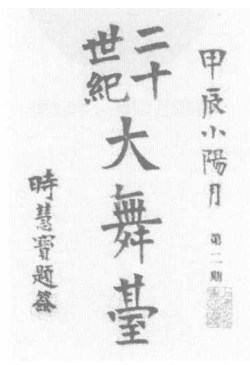 甲辰小陽月
第二期
二十世紀大舞臺
時慧寶題簽